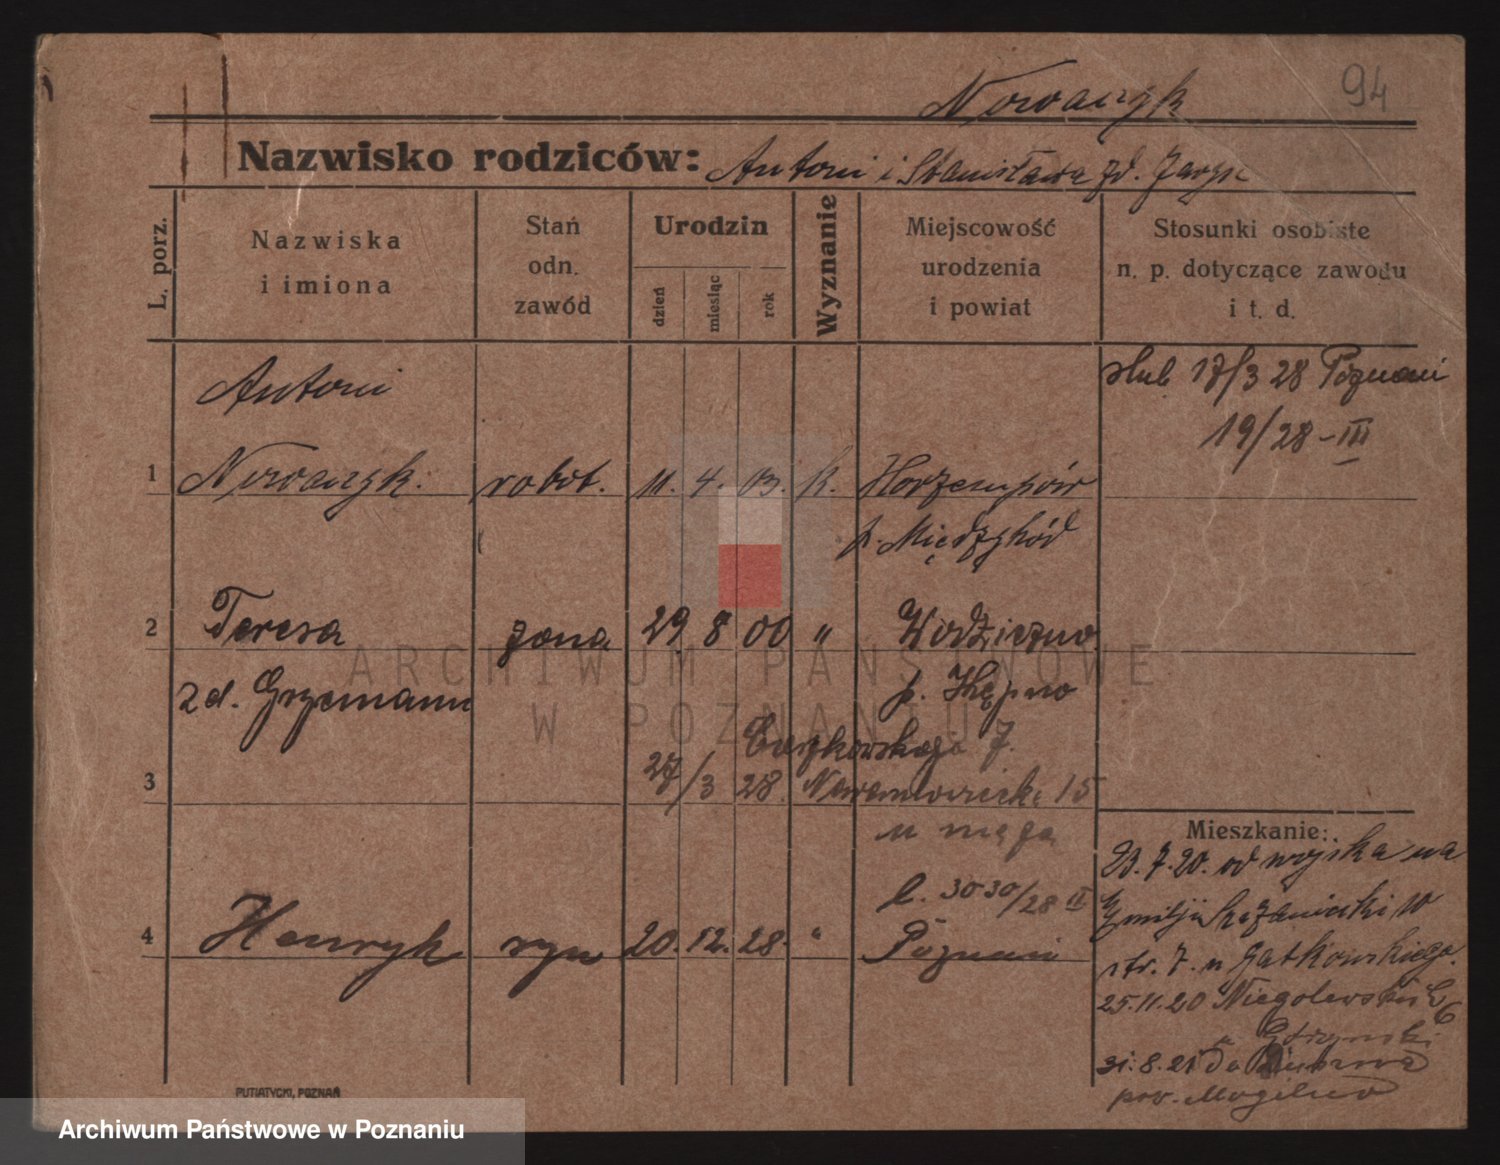 94
Nowaczyk
Nazwisko rodziców: Antoni i Stanisława zd.
L. porz.
Nazwiska
i imiona
Stań
odn.
zawód
Urodzin
dzień
miesiąc
rok
Wyznanie
Miejscowość
urodzenia
i powiat
Stosunki osobiste
n. p. dotyczące zawodu
i t. d.
Antoni
ślub 17/3 28 Poznań
19/28 - III
1 Nowaczyk. robot. 11. 4. 03. k.
p. Międzychód
2 Teresa żona 29 8 00 „ Wodziczno
zd. Grzemann p. Kępno
7.
3 27/3 28. 15
u męża
l. 3030/28 II
4 Henryk syn 20. 12. 28. „ Poznań
Mieszkanie:
23.7.20. od wojska na
str. 7. u
25.11.20 Niegolewskich 6
31.8.21 do
pow. Mogilno
PUTIATYCKI, POZNAŃ
ARCHIWUM PAŃSTWOWE
W POZNANIU
Archiwum Państwowe w Poznaniu